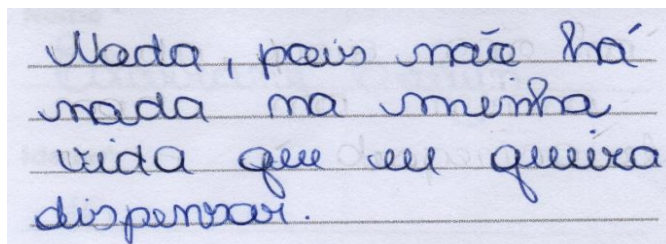 Nada, pois não há
nada na minha
vida que eu queira
dispensar.